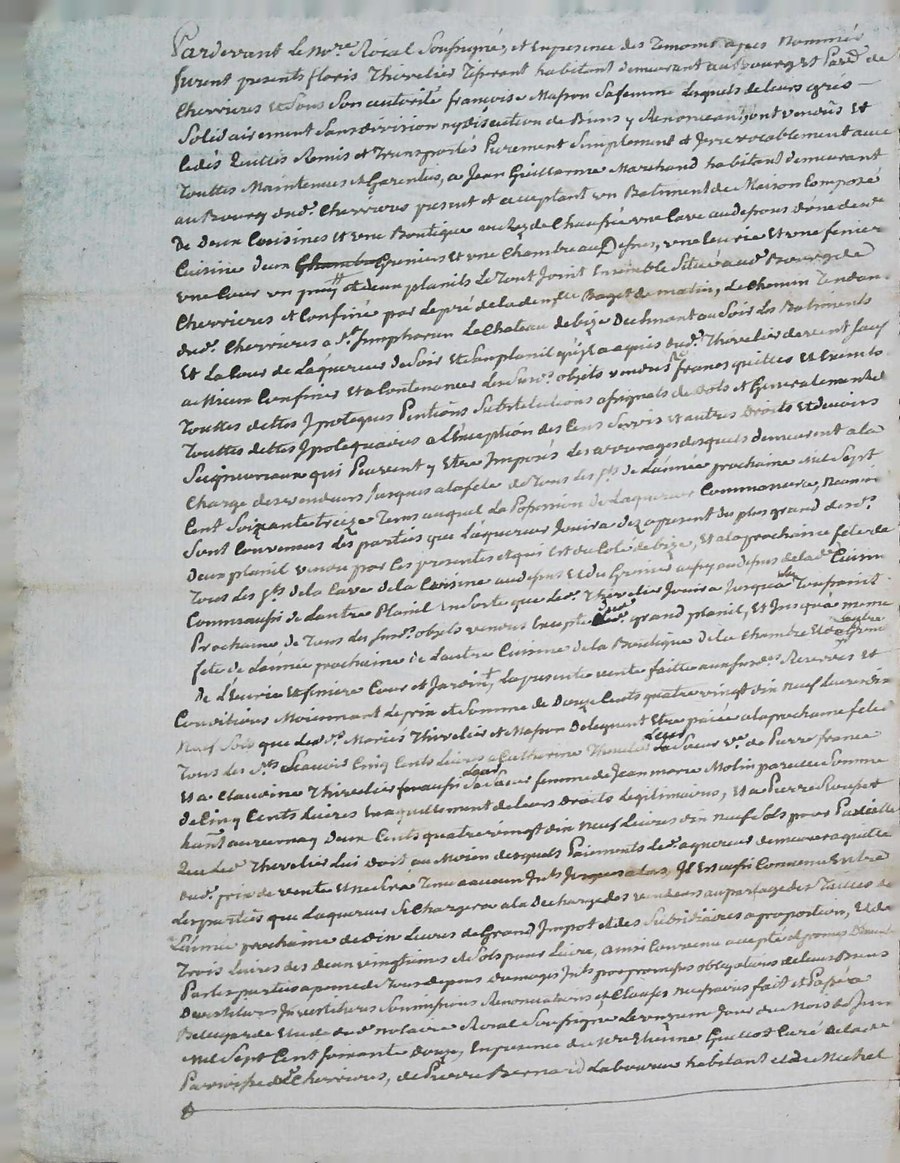 Pardevant le No.re Roial Soussigné, et en presence des temoins apres nommés
furent presents floris Thivelier Tisserant habitant demeurant au Bourg et Par.se de
Cherrieres et sous son autorité francoise Masson sa femme lesquels de leurs grés
Solidairement sans division ny discution de Biens y Renonceant, ont vendus et
cedés quittés Remis et Transportés Purement Simplement et Irrevocablement avec
Touttes Maintenues et Garenties, a Jean Guillaume Marchand habitant demeurant
au Bourg dud. Cherrieres present et acceptant un Batiment de Maison Composé
De Deux Cuisines et une Boutique au Rez de Chaussée une Cave au dessous d'une
Cuisine d'un Chambre Greniers et une Chambre au Dessus, une Ecurie et une feniere
une Cour un et deux planils Le Tout Joint Ensemble Situé aud. Bourg de
Cherrieres et Confiné par le pré de la de matin, le Chemin Tendant
dud. Cherrieres a S.t Simphorien le Chateau de bize Declinant au Soir les Batiments
Et la Cour de L'aquereur de Soir Et un planil qu'il a aquis dud. Thivelier de vent sauf
a Mieux Confiner Et a Contenances les Sus.d objets vendus francs quittes et Exempts
Touttes dettes Ipoteques Pentions Substitutions de Dots et Generalement de
Touttes dettes Ipotequaires a L'exception des Cens Servis et autres Droits et devoirs
Seigneuriaux qui Peuvent y Etre Imposés Les arrerages desquels demeurent a la
Charge des vendeurs Jusques a la fete de Tous les S.ts de L'année prochaine Mil Sept
Cent Soixante treize Tems auquel La Possession de L'aquereur Commencera, Neamoin
Sont Convenus les parties que L'aquereur Jouira dez a present du plus grand des d.s
Deux planil vendu par Ces presentes et qui Est du Coté de bize, Et a la prochaine fete de
Tous les S.ts de la Cave de la Cuisine au dessus Et du Grenier aussy au dessus de lad. Cuisine
Comme aussi de L'autre Planil En sorte que led. Thivelier Jouira Jusqu'a la Toussaint
Prochaine de Tous les sus.d objets vendus Excepté dud. grand planil, Et Jusqu'a meme
fete de L'année prochaine de L'autre Cuisine de la Boutique de la Chambre Et
De L'Ecurie et feniere Cour et Jardin, La presente vente faitte aux susd. Reserves et
Conditions Moiennant le prix et Somme de Douze Cents quatre vingt dix neuf Livres dix
Neuf Sols que lesd. Mariés Thivelier et Masson Deleguent Etre paiée a la prochaine fete
Tous les S.ts Scavoir Cinq Cents Livres a Catherine Thivelier Leur Soeur v.e de Pierre france
Et a Claudine Thivelier aussi Leur Soeur femme de Jean marie Molin pareille Somme
de Cinq Cents Livres En aquittement de leurs Droits Legitimaires, Et a Pierre
Deux Cents quatre vingt dix neuf Livres dix neuf sols pour Pareille
que led. Thivelier Lui doit au Moien desquels Paiements led. aquereur demeurera quitte
dud. prix de vente Et Tems aucun Int. Il Est aussi Convenu Entre
les parties que L'aquereur Se Chargera a la Decharge des vendeurs au partage des Tailles de
L'année prochaine de dix Livres de Grand Impot et des Subsidiaires a proportion, Et de
Trois Livres des deux vingtiemes et Sols pour Livre, ainsi Convenu accepté et promis Observer
Par les parties a peine de Tous depens Domages Int. par promesses obligations de leurs Biens
Devestitures Investitures Soumissions Renonciations et Clauses fait et Passé a
Bellegarde Etude du d. Notaire Roial Soussigné Le onzieme Jour du Mois de Juin
Mil Sept Cent soixante douze, En presence de M.re Etienne Guillot Curé de lad.
Parroisse de Cherrieres, de Pierre Bernard Laboureur habitant et de Michel